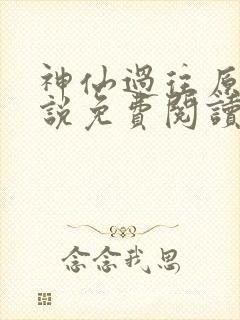 神仙過往原
說免費閱讀
念念我思